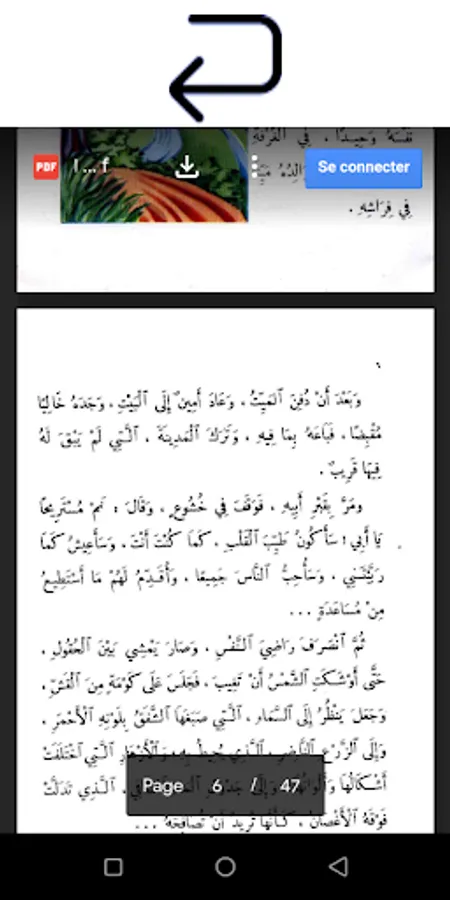 نَفْسَهُ وَحِيدًا ، فِي الْغُرْفَةِ
PDF ا ... f Se connecter
فِي فِرَاشِهِ .
٦
وَبَعْدَ أَنْ دُفِنَ الْمَيِّتُ ، وَعَادَ أَمِينٌ إِلَى الْبَيْتِ ، وَجَدَهُ خَالِيًا
مُقْبِضًا ، فَبَاعَهُ بِمَا فِيهِ ، وَتَرَكَ الْمَدِينَةَ ، الَّتِي لَمْ يَبْقَ لَهُ
فِيهَا قَرِيبٌ .
وَمَرَّ بِقَبْرِ أَبِيهِ ، فَوَقَفَ فِي خُشُوعٍ ، وَقَالَ : نَمْ مُسْتَرِيحًا
يَا أَبِي ! سَأَكُونُ طَيِّبَ الْقَلْبِ ، كَمَا كُنْتَ أَنْتَ ، وَسَأَعِيشُ كَمَا
رَبَّيْتَنِي ، وَسَأُحِبُّ النَّاسَ جَمِيعًا ، وَأُقَدِّمُ لَهُمْ مَا أَسْتَطِيعُ
مِنْ مُسَاعَدَةٍ ...
ثُمَّ انْصَرَفَ رَاضِيَ النَّفْسِ ، وَصَارَ يَمْشِي بَيْنَ الْحُقُولِ ،
حَتَّى أَوْشَكَتِ الشَّمْسُ أَنْ تَغِيبَ ، فَجَلَسَ عَلَى كَوْمَةٍ مِنَ الْقَشِّ ،
وَجَعَلَ يَنْظُرُ إِلَى السَّمَاءِ ، الَّتِي صَبَغَهَا الشَّفَقُ بِلَوْنِهِ الْأَحْمَرِ ،
وَإِلَى الزَّرْعِ النَّاضِرِ ، الَّذِي يُحِيطُ بِهِ ، وَالْأَزْهَارِ الَّتِي اخْتَلَفَتْ
أَشْكَالُهَا وَأَلْوَانُهَا ، وَإِلَى الَّذِي تَدَلَّتْ
فَوْقَهُ الْأَغْصَانُ ، كَأَنَّهَا تُرِيدُ أَنْ تُصَافِحَهُ ...
Page 6 / 47